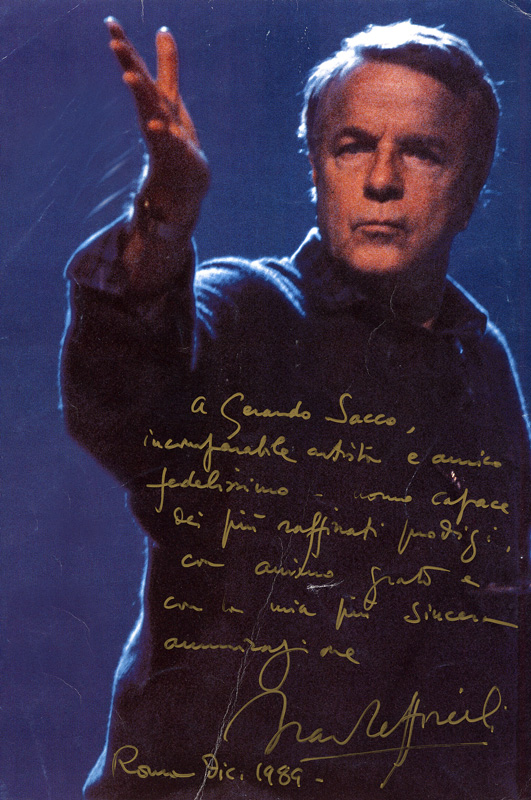 A Gerardo Sacco,
incomparabile artista e amico
fedelissimo - uomo capace
dei più raffinati prodigi,
con animo grato e
con la mia più sincera
ammirazione
Franco Zeffirelli
Roma Dic. 1989 -